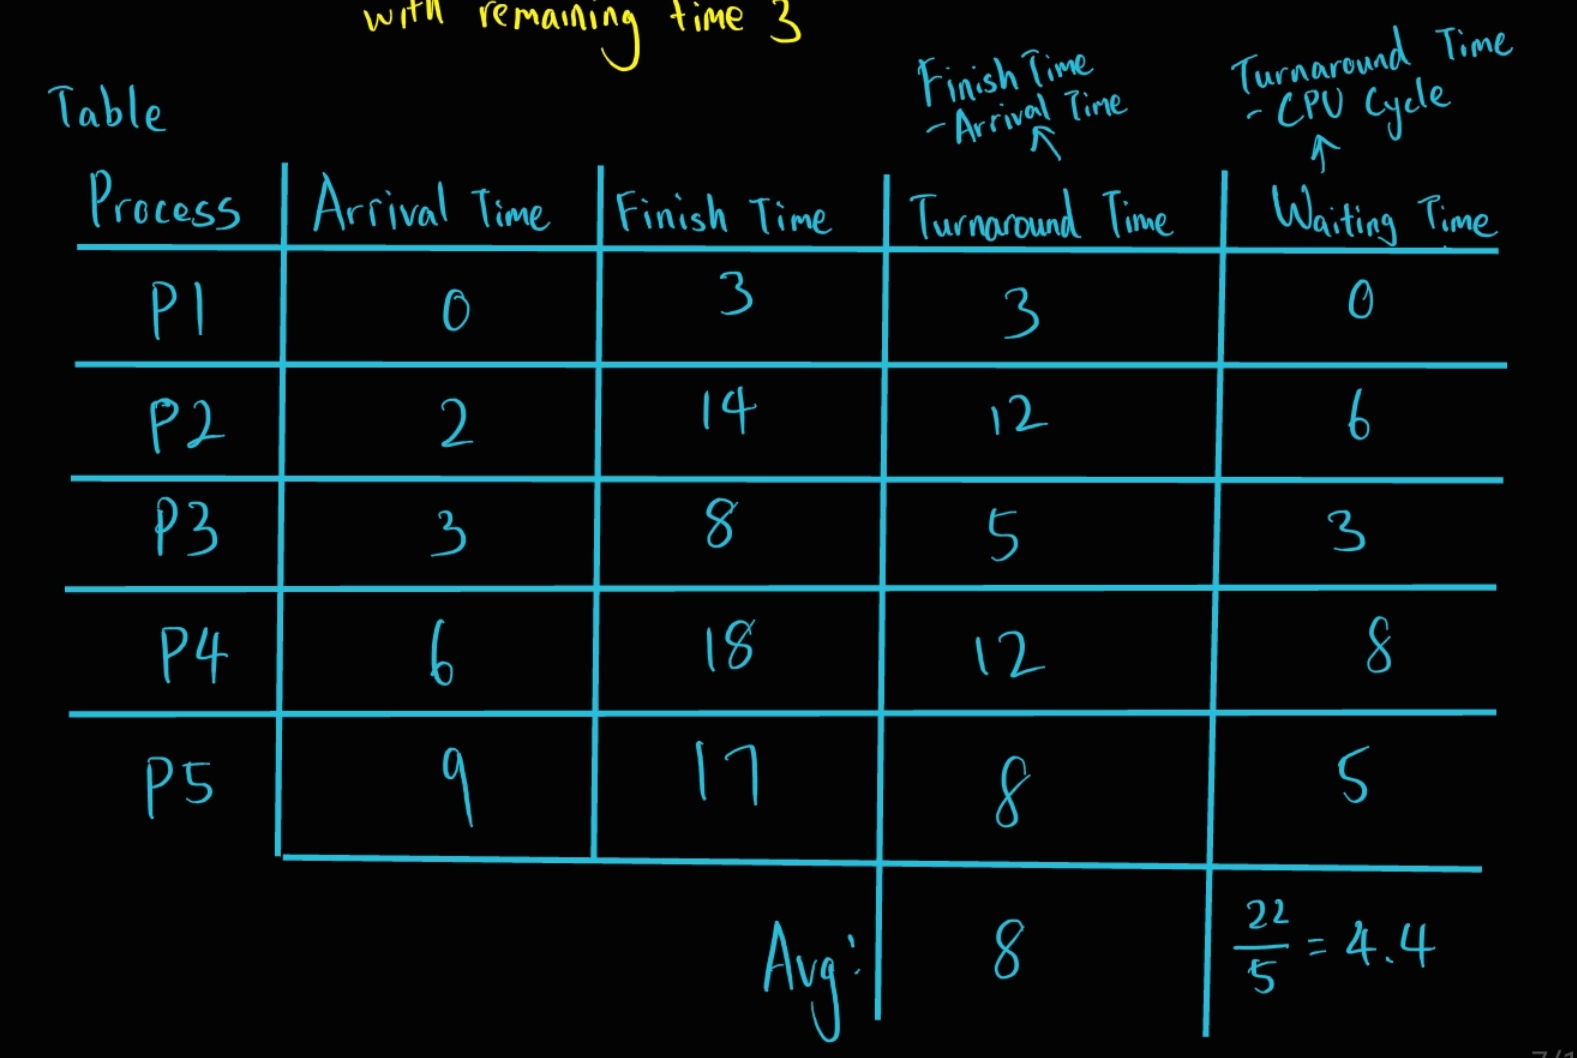 with remaining time 3
Table
Finish Time
- Arrival Time
Turnaround Time
- CPU Cycle
Process Arrival Time Finish Time Turnaround Time Waiting Time
P1 0 3 3 0
P2 2 14 12 6
P3 3 8 5 3
P4 6 18 12 8
P5 9 17 8 5
Avg: 8 22/5 = 4.4